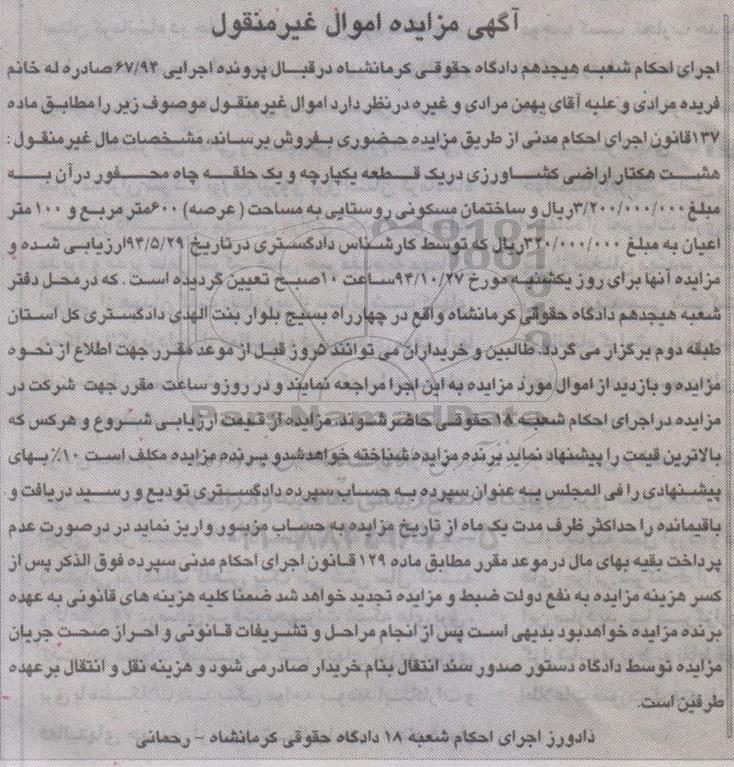 آگهی مزایده اموال غیرمنقول
اجرای احکام شعبه هیجدهم دادگاه حقوقی کرمانشاه درقبال پرونده اجرایی ۶۷/۹۴صادره له خانم
فریده مرادی و علیه آقای بهمن مرادی و غیره درنظر دارد اموال غیرمنقول موصوف زیر را مطابق ماده
۱۳۷قانون اجرای احکام مدنی از طریق مزایده حضوری بفروش برساند، مشخصات مال غیرمنقول :
هشت هکتار اراضی کشاورزی دریک قطعه یکپارچه و یک حلقه چاه محفور درآن به
مبلغ ۳/۲۰۰/۰۰۰/۰۰۰ریال و ساختمان مسکونی روستایی به مساحت ( عرصه) ۶۰۰متر مربع و ۱۰۰ متر
اعیان به مبلغ ۳۲۰/۰۰۰/۰۰۰ریال که توسط کارشناس دادگستری درتاریخ ۹۴/۵/۲۹ارزیابی شده و
مزایده آنها برای روز یکشنبه مورخ ۹۴/۱۰/۲۷ساعت ۱۰صبح تعیین گردیده است . که درمحل دفتر
شعبه هیجدهم دادگاه حقوقی کرمانشاه واقع در چهارراه بسیج بلوار بنت الهدی دادگستری کل استان
طبقه دوم برگزار می گردد. طالبین و خریداران می توانند ۵روز قبل از موعد مقرر جهت اطلاع از نحوه
مزایده و بازدید از اموال مورد مزایده به این اجرا مراجعه نمایند و در روزو ساعت مقرر جهت شرکت در
مزایده دراجرای احکام شعبه ۱۸ حقوقی حاضر شوند، مزایده از قیمت ارزیابی شروع و هرکس که
بالاترین قیمت را پیشنهاد نماید برنده مزایده شناخته خواهدشدو برنده مزایده مکلف است ۱۰٪ بهای
پیشنهادی را فی المجلس به عنوان سپرده به حساب سپرده دادگستری تودیع و رسید دریافت و
باقیمانده را حداکثر ظرف مدت یک ماه از تاریخ مزایده به حساب مزبور واریز نماید در درصورت عدم
پرداخت بقیه بهای مال درموعد مقرر مطابق ماده ۱۲۹ قانون اجرای احکام مدنی سپرده فوق الذکر پس از
کسر هزینه مزایده به نفع دولت ضبط و مزایده تجدید خواهد شد ضمنا کلیه هزینه های قانونی به عهده
برنده مزایده خواهدبود بدیهی است پس از انجام مراحل و تشریفات قانونی و احراز صحت جریان
مزایده توسط دادگاه دستور صدور سند انتقال بنام خریدار صادرمی شود و هزینه نقل و انتقال برعهده
طرفین است.
دادورز اجرای احکام شعبه ۱۸ دادگاه حقوقی کرمانشاه – رحمانی
ParsNamadData